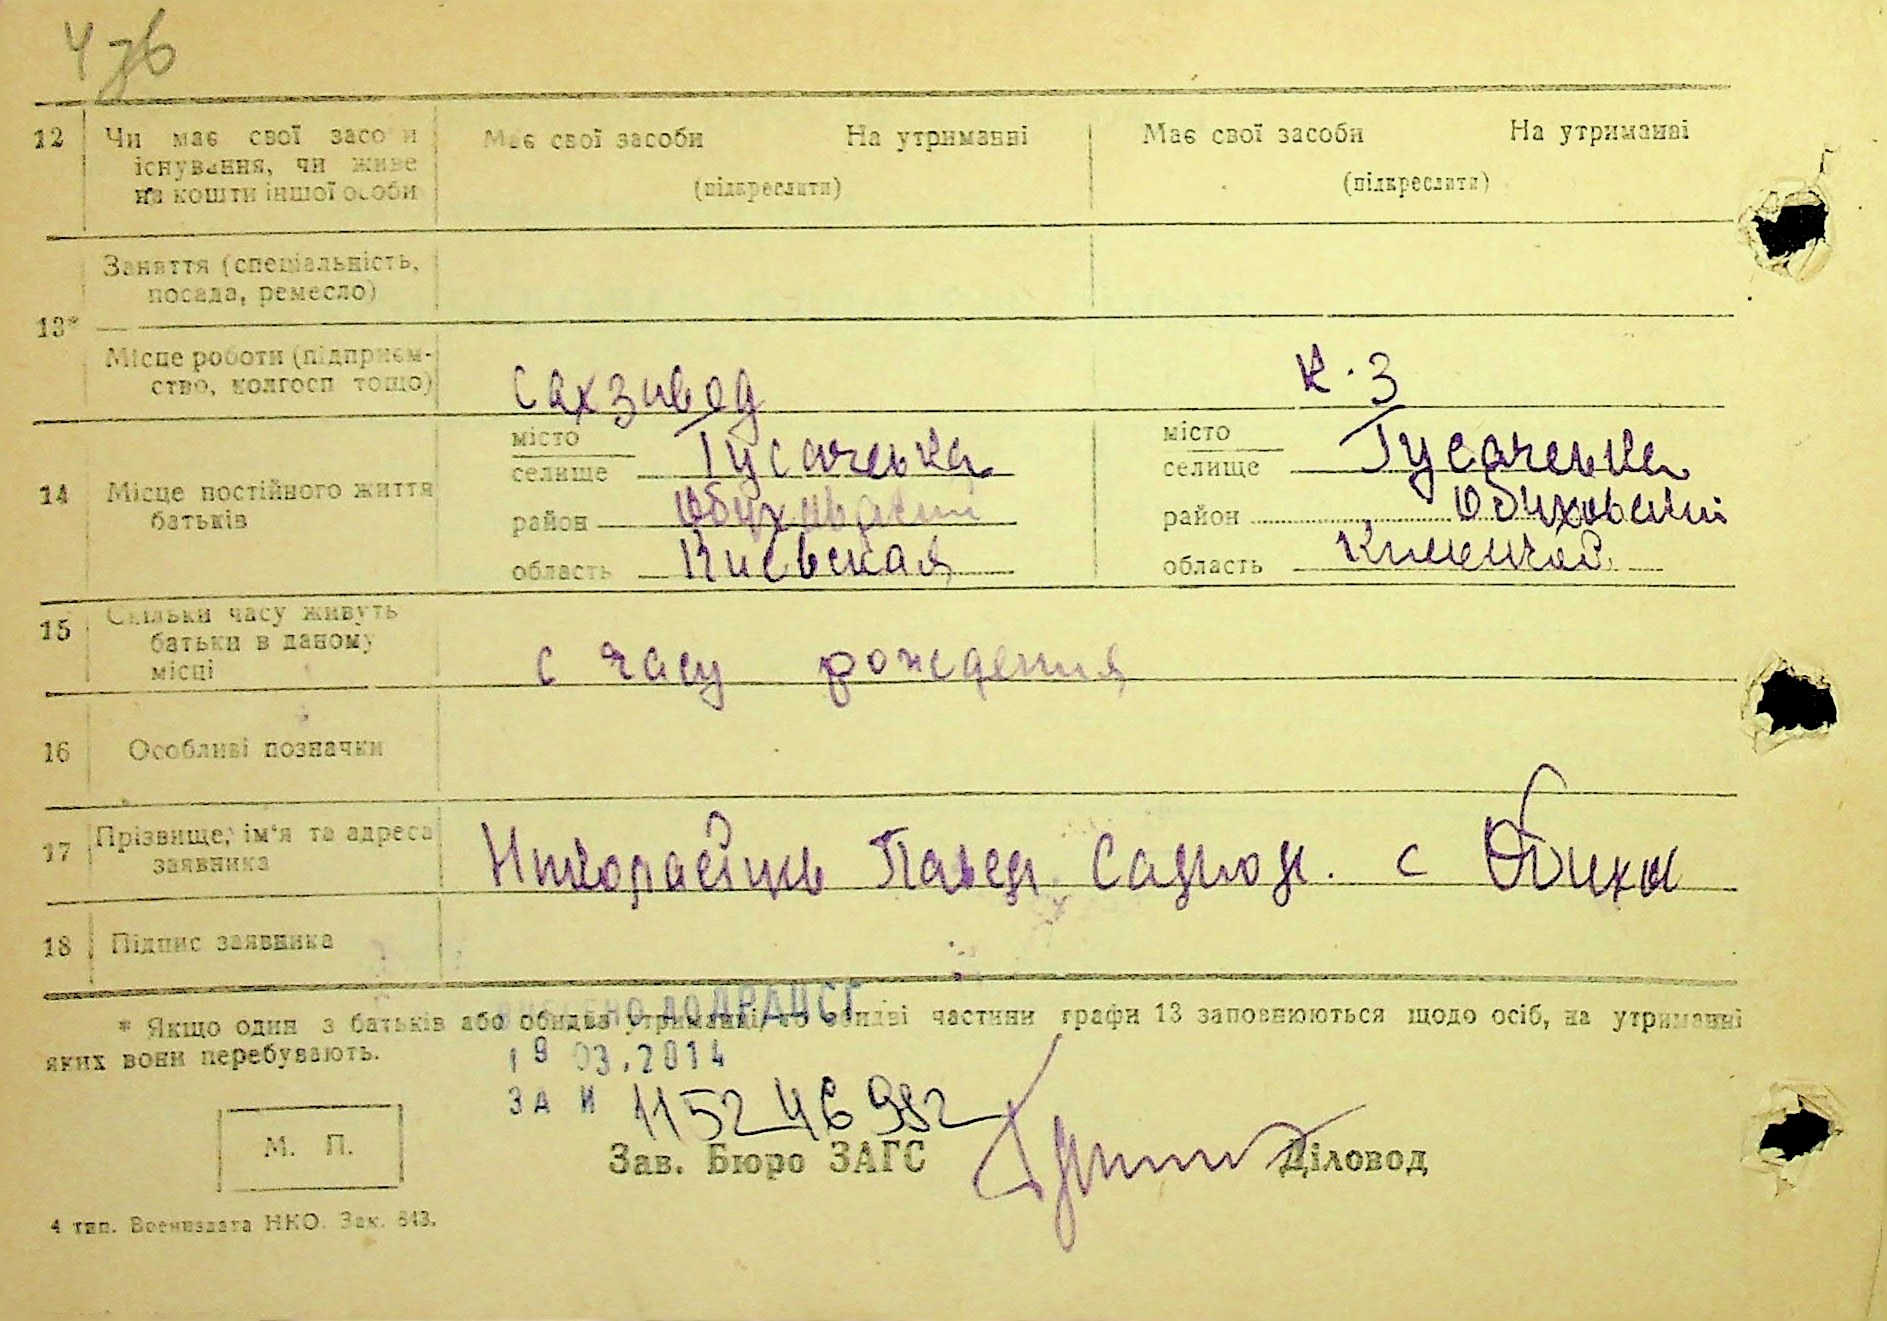 4 зв
12 Чи має свої засоби Має свої засоби На утриманні Має свої засоби На утриманні
існування, чи живе (підкреслити) (підкреслити)
на кошти іншої особи
Заняття (спеціальність,
посада, ремесло)
13*
Місце роботи (підприєм-
ство, колгосп тощо) Сахзивод К.З
місто місто
селище Гусаченька селище Гусаченька
14 Місце постійного життя
батьків район Обуховский район Обиховский
область Киевская область
15 Скільки часу живуть
батьки в даному
місці с часу рождения
16 Особливі позначки
17 Прізвище, ім'я та адреса
заявника Павел с
18 Підпис заявника
ВНЕСЕНО ДО ДРАЦСГ
* Якщо один з батьків або обидва утриманні, то обидві частини графи 13 заповнюються щодо осіб, на утриманні
яких вони перебувають.
19 03.2014
ЗА N 115246982
М. П.
Зав. Бюро ЗАГС Діловод
4 тип. Воениздата НКО. Зак. 843.